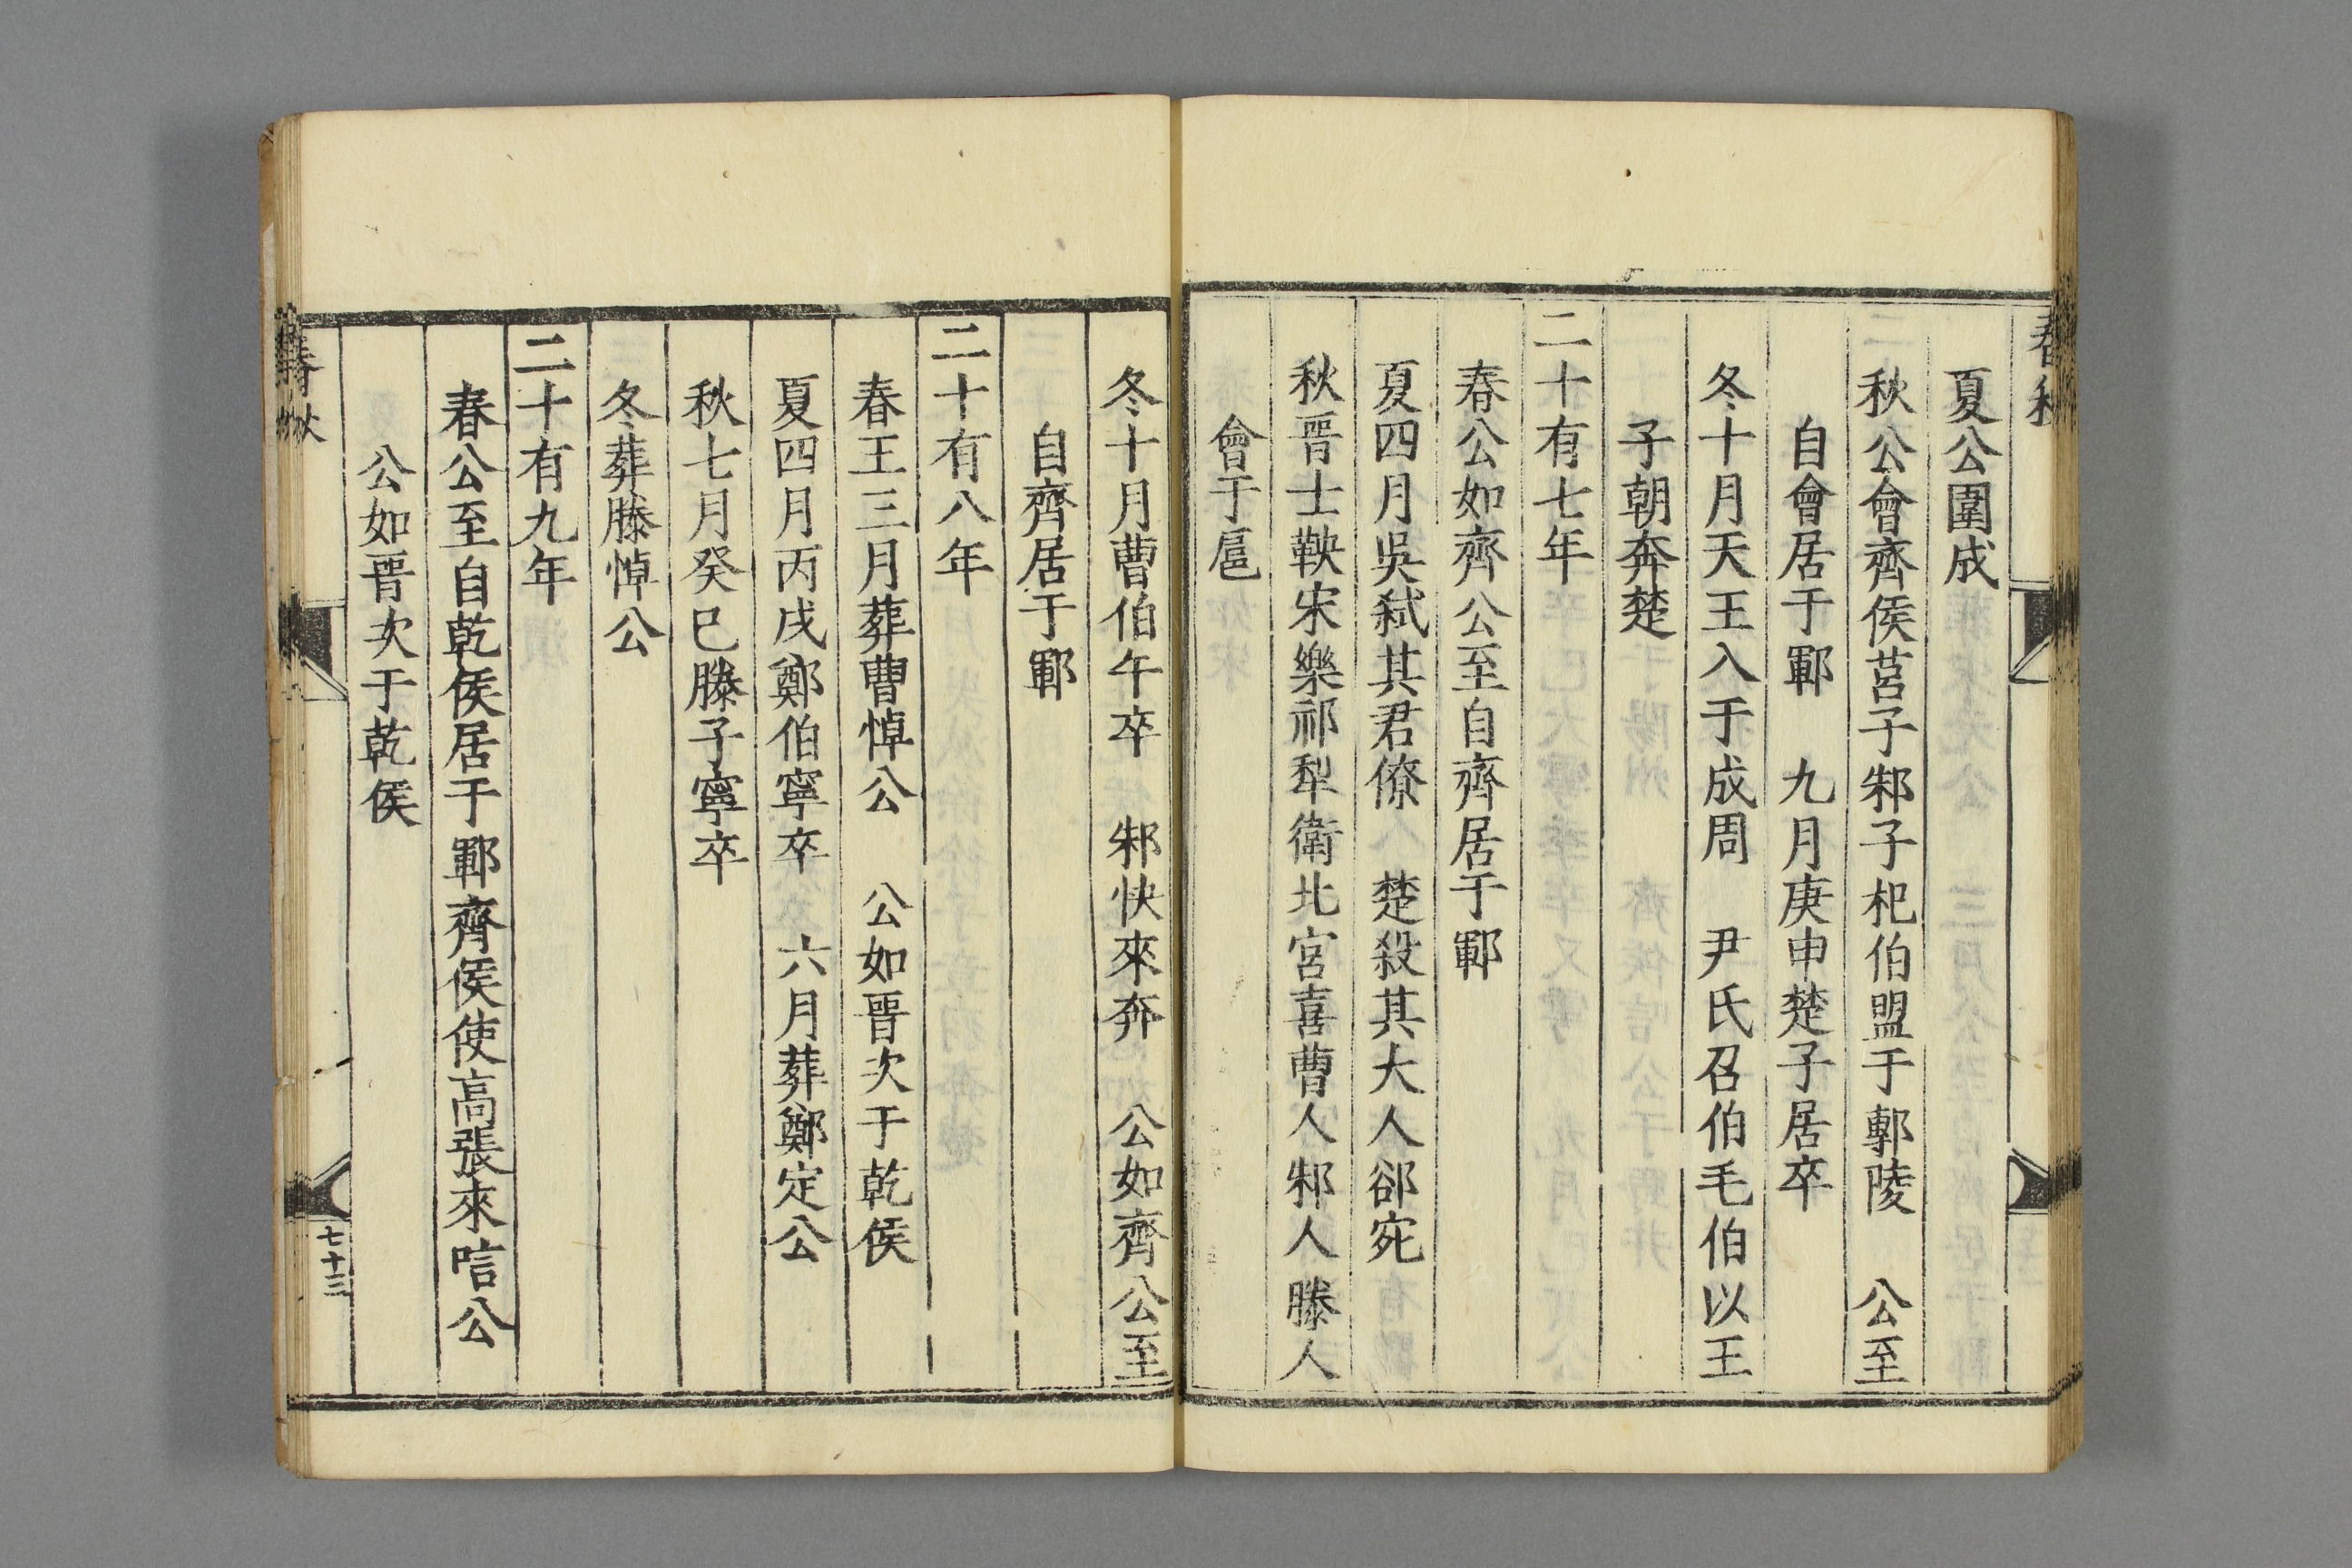 春秋
夏公圍成
秋公會齊侯莒子邾子杞伯盟于鄟陵　公至
自會居于鄆　九月庚申楚子居卒
冬十月天王入于成周　尹氏召伯毛伯以王
子朝奔楚
二十有七年
春公如齊公至自齊居于鄆
夏四月吳弑其君僚　楚殺其大人郤宛
秋晉士鞅宋樂祁犁衛北宮喜曹人邾人滕人
會于扈
冬十月曹伯午卒　邾快來奔　公如齊公至
自齊居于鄆
二十有八年
春王三月葬曹悼公　公如晉次于乾侯
夏四月丙戌鄭伯寧卒　六月葬鄭定公
秋七月癸巳滕子寧卒
冬葬滕悼公
二十有九年
春公至自乾侯居于鄆齊侯使高張來唁公
公如晉次于乾侯
春秋
七十三